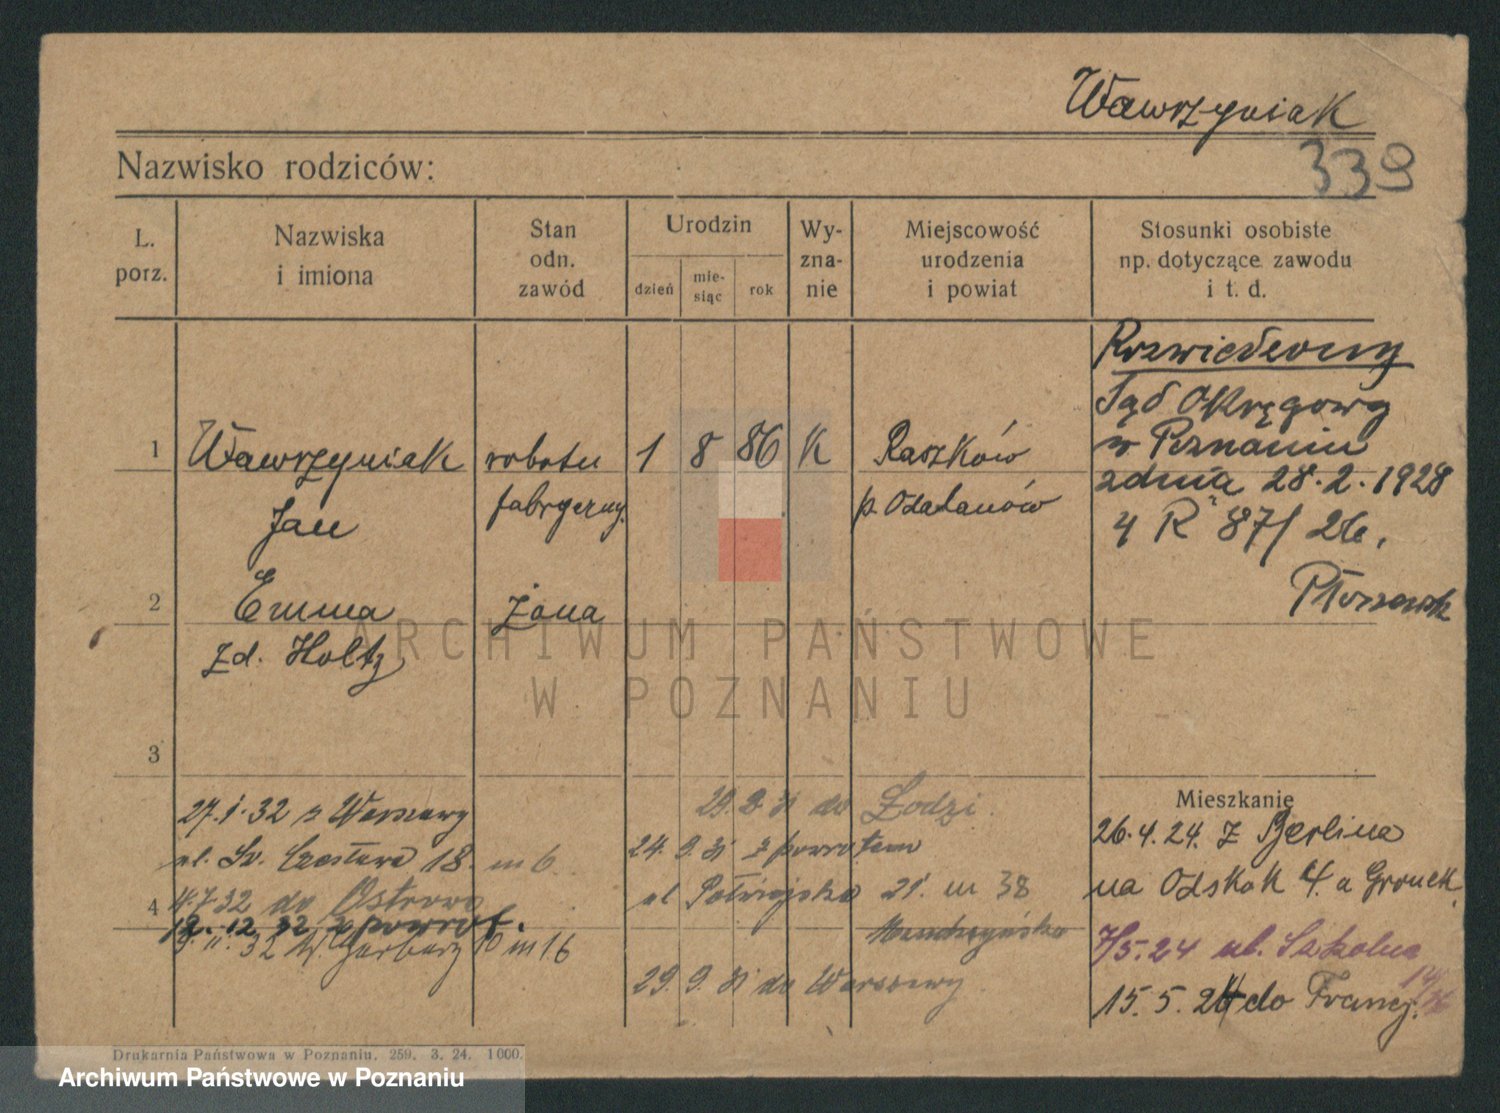 Wawrzyniak
339
Nazwisko rodziców:
L. porz.
Nazwiska i imiona
Stan odn. zawód
Urodzin
dzień
mie-
siąc
rok
Wy-
zna-
nie
Miejscowość
urodzenia
i powiat
Stosunki osobiste
np. dotyczące zawodu
i t. d.
Rozwiedziony
Sąd Okręgowy
w Poznaniu
z dnia 28.2.1928
4 R 87/26.
1 Wawrzyniak robotn 1 8 86 K Raszków
Jan fabryczny. p. Odalanów
2 Emma żona
zd. Holtz
ARCHIWUM PAŃSTWOWE
W POZNANIU
3
27.1.32 z Warszawy
ul. Św. Czesława 18. m 6.
4
4.7.32 do Ostrowa
12.12.32 z powrot.
32 W. Garbary 10 m 16
29. 31 do Łodzi.
24.9.31 z powrotem
ul 21. m 38
29.9.31 do Warszawy
Mieszkanie
26.4.24. z Berlina
na Odskok 4. a
7/5.24 ul. Szkolna
15.5.24 do Francj.
Drukarnia Państwowa w Poznaniu. 259. 3. 24. 1000.
Archiwum Państwowe w Poznaniu